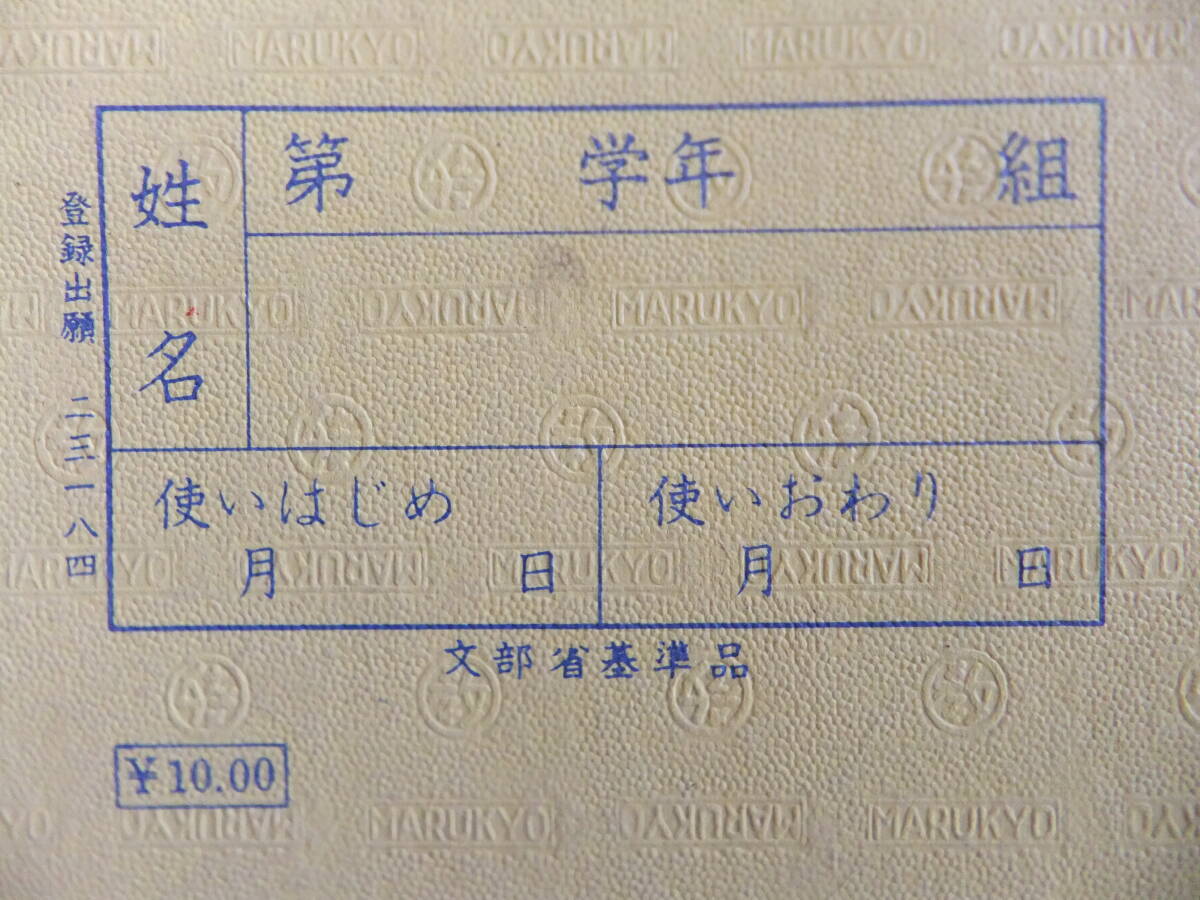 第 学年 組
姓名
使いはじめ
月 日
使いおわり
月 日
登録出願 二三一八四
文部省基準品
¥10.00
MARUKYO